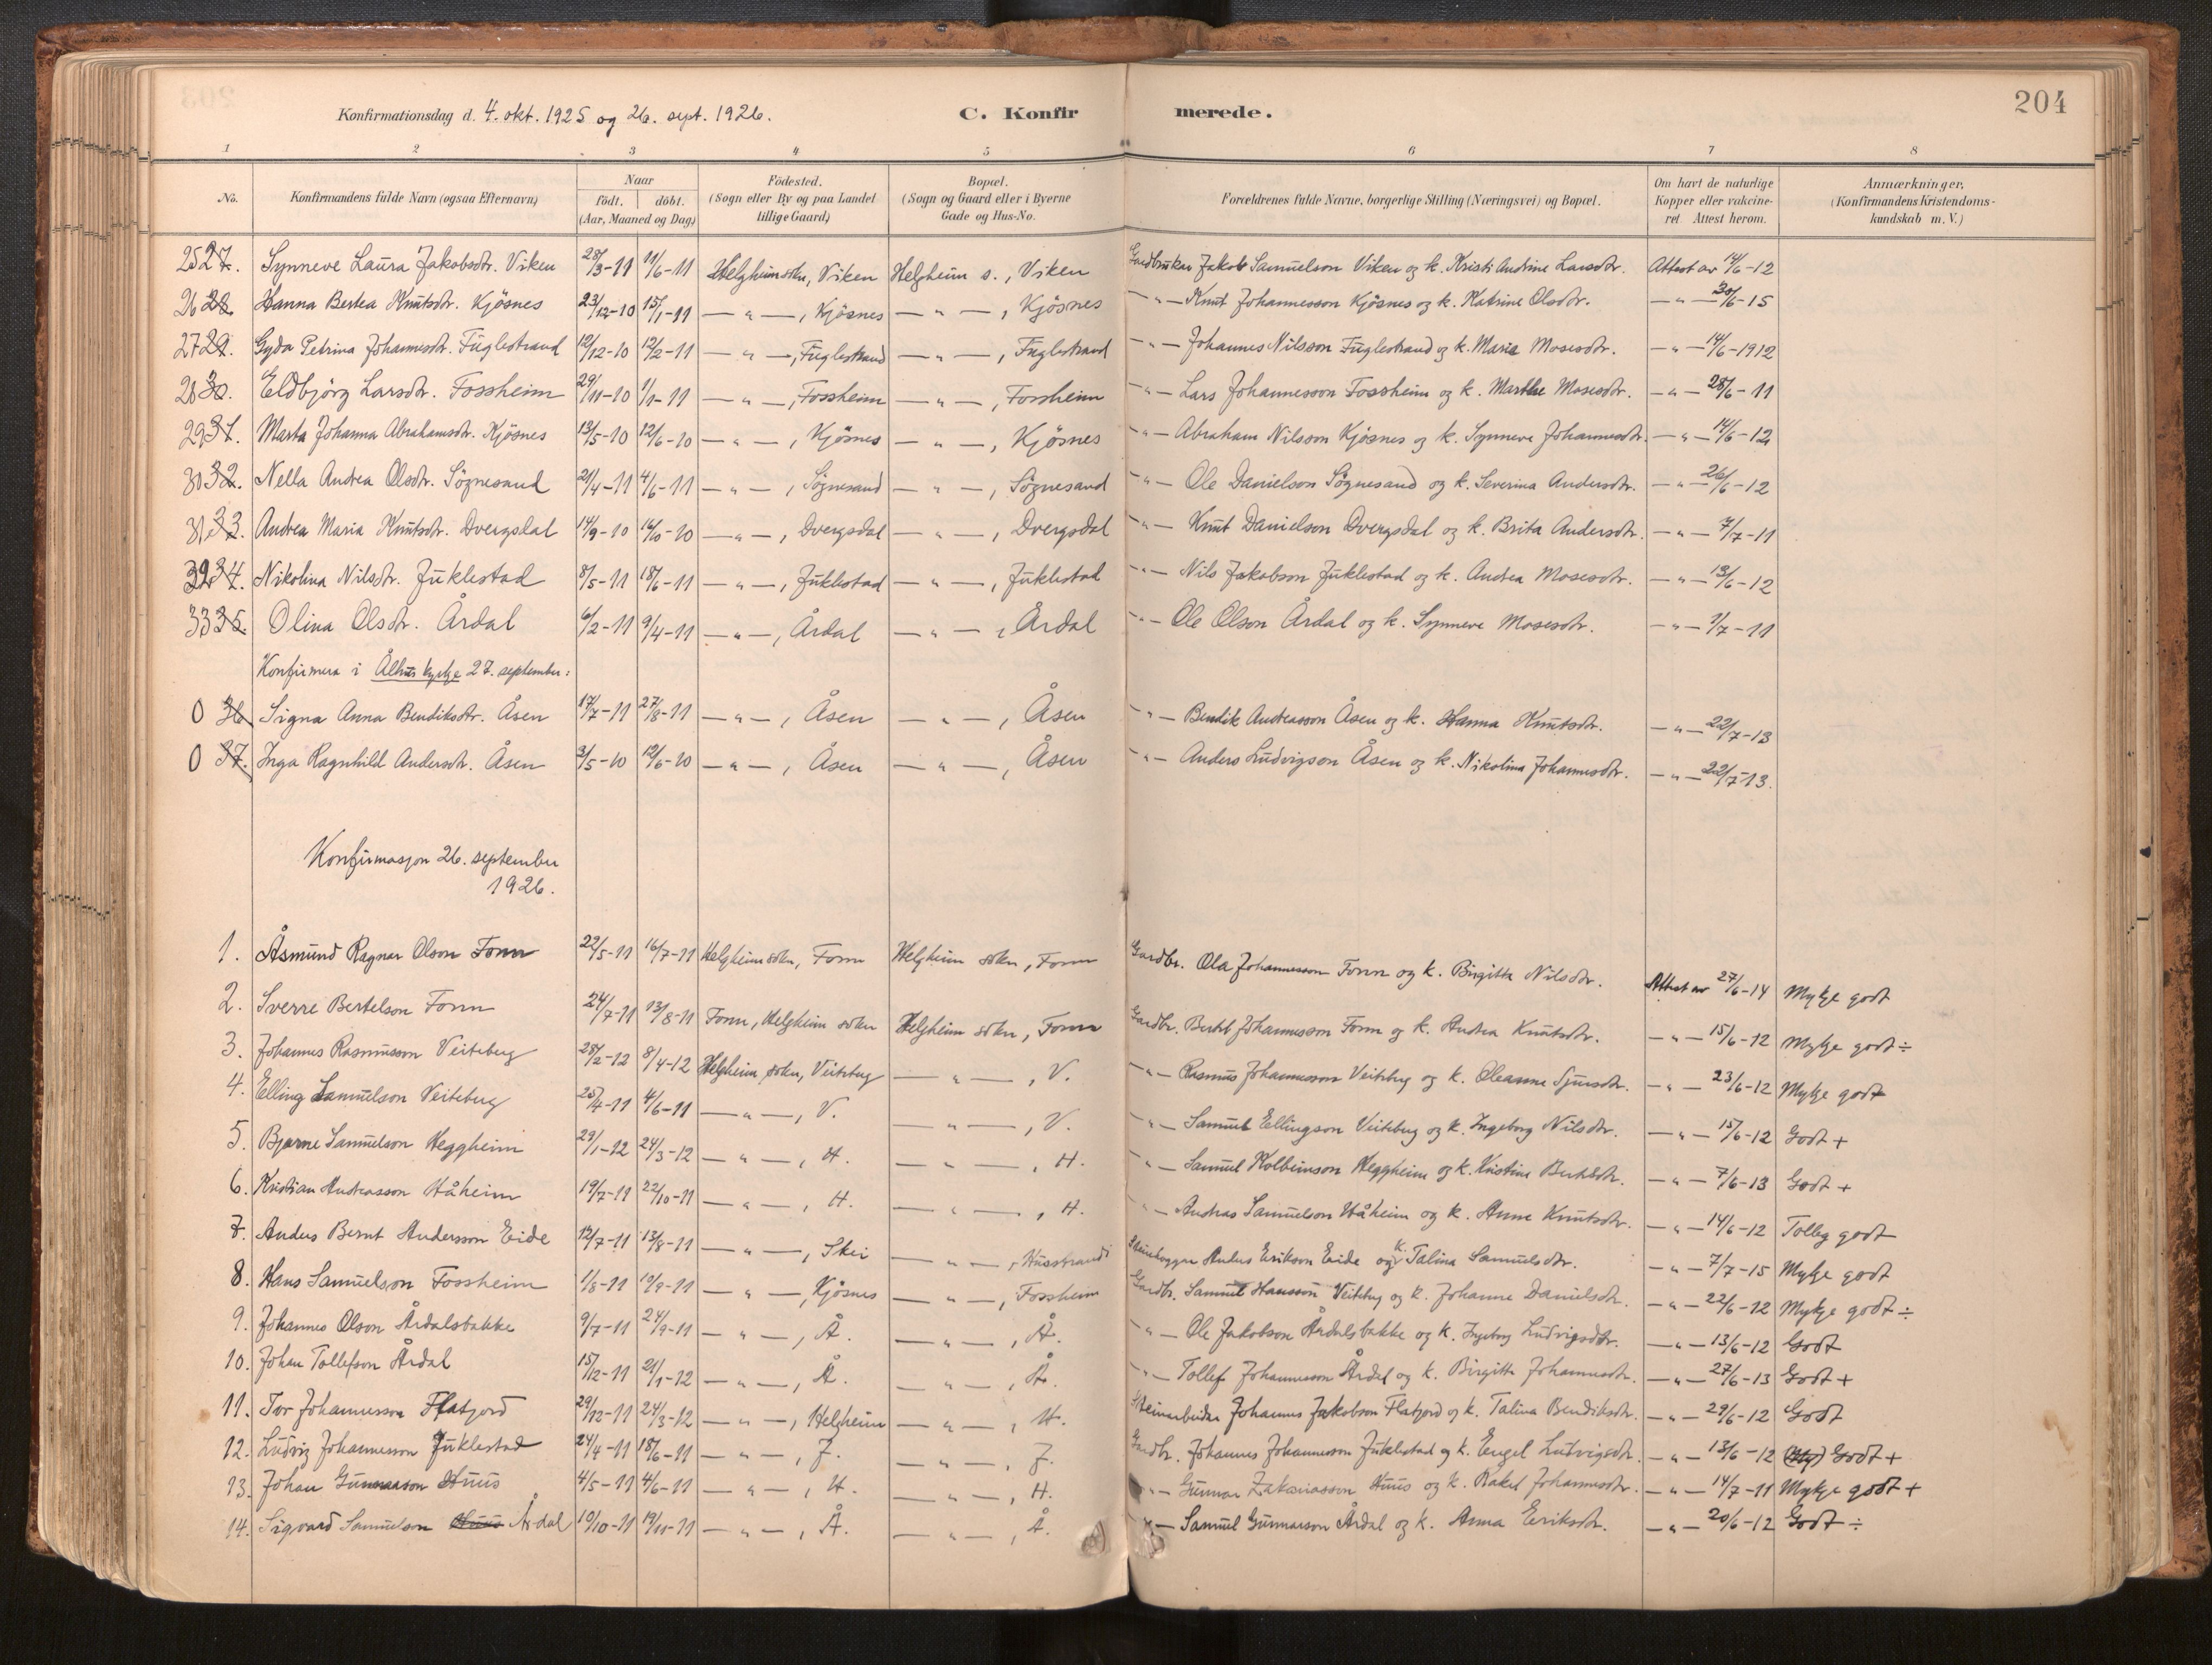 Konfirmationsdag d. 4. okt. 1925 og 26. sept. 1926. C. Konfir merede. 204
1 2 3 4 5 6 7 8
No. Konfirmandens fulde Navn (ogsaa Efternavn) Naar födt. döbt. (Aar, Maaned og Dag) Födested. (Sogn eller By og paa Landet tillige Gaard) Bopæl. (Sogn og Gaard eller i Byerne Gade og Hus-No. Forældrenes fulde Navne, borgerlige Stilling (Næringsvei) og Bopæl. Om havt de naturlige Kopper eller vakcineret. Attest herom. Anmærkninger, (Konfirmandens Kristendomskundskab m. V.)
25 27. Synneve Laura Jakobsdtr. Viken 28/3-11 11/6-11 Helgheim sokn, Viken Helgheim s., Viken Gardbruker Jakob Samuelson Viken og k. Kristi Andrine Larsdtr. Attest av 14/6-12
26 28. Hanna Bertea Knutsdtr. Kjösnes 23/12-10 15/1-11 — " —, Kjösnes — " —, Kjösnes — " — Knut Johannesson Kjösnes og k. Katrine Olsdtr. — " — 30/6-15
27 29. Gyda Petrina Johannesdtr. Fuglestrand 12/12-10 12/2-11 — " —, Fuglestrand — " —, Fuglestrand — " — Johannes Nilsson Fuglestrand og k. Maria Mosesdtr. — " — 14/6-1912
28 30. Eldbjörg Larsdtr. Fossheim 29/11-10 1/1-11 — " —, Fossheim — " —, Fossheim — " — Lars Johannesson Fossheim og k. Marthe Mosesdtr. — " — 28/6-11
29 31. Marta Johanna Abrahamsdtr. Kjösnes 13/5-10 12/6-10 — " —, Kjösnes — " —, Kjösnes — " — Abraham Nilsson Kjösnes og k. Synneve Johannesdtr. — " — 14/6-12
30 32. Nella Andrea Olsdtr. Sögnesand 21/4-11 4/6-11 — " —, Sögnesand — " —, Sögnesand — " — Ole Danielson Sögnesand og k. Severina Andersdtr. — " — 26/6-12
31 33. Andrea Maria Knutsdtr. Dvergsdal 14/9-10 16/10-10 — " —, Dvergsdal — " —, Dvergsdal — " — Knut Danielson Dvergsdal og k. Brita Andersdtr. — " — 7/7-11
32 34. Nikolina Nilsdtr. Juklestad 8/5-11 18/6-11 — " —, Juklestad — " —, Juklestad — " — Nils Jakobson Juklestad og k. Andrea Mosesdtr. — " — 13/6-12
33 35. Olina Olsdtr. Årdal 6/2-11 9/4-11 — " —, Årdal — " —, Årdal — " — Ole Olson Årdal og k. Synneve Mosesdtr. — " — 1/7-11
Konfirmera i Ålhus kyrkje 27. september:
0 36. Signa Anna Bendiksdtr. Åsen 17/7-11 27/8-11 — " —, Åsen — " —, Åsen — " — Bendik Andreasson Åsen og k. Hanna Knutsdtr. — " — 22/7-13
0 37. Inga Ragnhild Andersdtr. Åsen 3/5-10 12/6-10 — " —, Åsen — " —, Åsen — " — Anders Ludvigson Åsen og k. Nikolina Johannesdtr. — " — 22/7-13.
Konfirmasjon 26. september
1926.
1. Åsmund Ragnar Olson Fonn 22/5-11 16/7-11 Helgheim sokn, Fonn Helgheim sokn, Fonn Gardbr. Ola Johannesson Fonn og k. Birgitte Nilsdtr. Attest av 27/6-14 Mykje godt
2. Sverre Bertelson Fonn 24/7-11 13/8-11 Fonn, Helgheim sokn Helgheim sokn, Fonn Gardbr. Bertel Johannesson Fonn og k. Andrea Knutsdtr. — " — 15/6-12 Mykje godt ÷
3. Johannes Rasmusson Veiteberg 28/2-12 8/4-12 Helgheim sokn, Veiteberg — " —, V. — " — Rasmus Johannesson Veiteberg og k. Oleanne Sjursdtr. — " — 23/6-12 Mykje godt
4. Elling Samuelson Veiteberg 25/4-11 4/6-11 — " —, V. — " —, V. — " — Samuel Ellingson Veiteberg og k. Ingeborg Nilsdtr. — " — 15/6-12 Godt +
5. Bjarne Samuelson Heggheim 29/1-12 24/3-12 — " —, H. — " —, H. — " — Samuel Kolbeinson Heggheim og k. Kristine Bertelsdtr. — " — 7/6-13 Godt +
6. Kristian Andreasson Håheim 19/7-11 22/10-11 — " —, H. — " —, H. — " — Andreas Samuelson Håheim og k. Anne Knutsdtr. — " — 14/6-12 Tolleg godt
7. Anders Bernt Andersson Eide 12/7-11 13/8-11 — " —, Skei — " —, Husstrandi Steinhoggar Anders Erikson Eide og k. Talina Samuelsdtr. — " — 7/7-15 Mykje godt
8. Hans Samuelson Fossheim 1/8-11 10/9-11 — " —, Kjösnes — " —, Fossheim Gardbr. Samuel Hansson Veiteberg og k. Johanne Danielsdtr. — " — 22/6-12 Mykje godt ÷
9. Johannes Olson Årdalsbakke 9/7-11 24/9-11 — " —, Å. — " —, Å. — " — Ole Jakobson Årdalsbakke og k. Ingeborg Ludvigsdtr. — " — 13/6-12 Godt
10. Johan Tollefson Årdal 15/12-11 21/1-12 — " —, Å. — " —, Å. — " — Tollef Johannesson Årdal og k. Birgitte Johannesdtr. — " — 27/6-13 Godt +
11. Tor Johannesson Flatjord 29/12-11 24/3-12 — " —, Helgheim — " —, H. Steinarbeider Johannes Jakobson Flatjord og k. Talina Bendiksdtr. — " — 29/6-12 Godt
12. Ludvig Johannesson Juklestad 24/4-11 18/6-11 — " —, J. — " —, J. Gardbr. Johannes Johannesson Juklestad og k. Engel Ludvigsdtr. — " — 13/6-12 (My) Godt +
13. Johan Gunnarson Huus 4/5-11 4/6-11 — " —, H. — " —, H. — " — Gunnar Zakariasson Huus og k. Rakel Johannesdtr. — " — 14/7-11 Mykje godt +
14. Sigvard Samuelson Huus Årdal 10/10-11 19/11-11 — " —, Å. — " —, Å. — " — Samuel Gunnarson Årdal og k. Anna Eriksdtr. — " — 20/6-12 Godt ÷